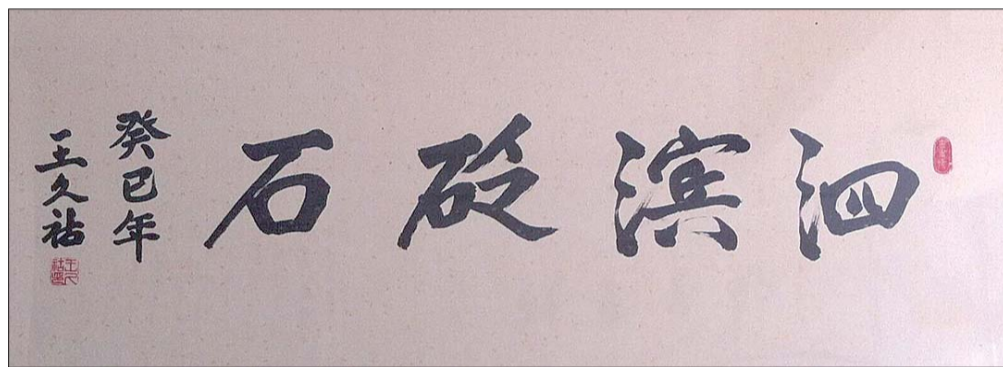 泗滨砭石
癸巳年
王久祜